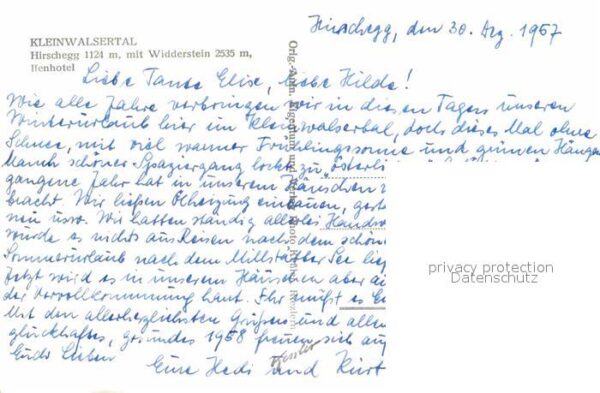 KLEINWALSERTAL
Hirschegg 1124 m, mit Widderstein 2535 m,
Ifenhotel
Hirschegg, den 30. Dez. 1957
Liebe Tante Elise, liebe Hilde!
Wie alle Jahre verbringen wir in diesen Tagen unseren
Winterurlaub hier im Kleinwalsertal, doch dieses Mal ohne
Schnee, mit viel warmer Frühlingssonne und grünen Hängen
Manch schöner Spaziergang lockt zu „österli
gangene Jahr hat in unserem Häuschen
bracht. Wir ließen Ölheizung einbauen,
neu usw. Wir hatten ständig allerlei Handw
würde es nichts aus Reisen nach dem schön
Sommerurlaub nach dem Millstätter See
Jetzt wird es in unserem Häuschen aber
der Vervollkommnung haut. Ihr müßt es
Mit den allerherzlichsten Grüßen und allen
glückhaftes, gesundes 1958 freuen sich auf
Euch Lieben
Eure Hedi und Kurt
privacy protection
Datenschutz